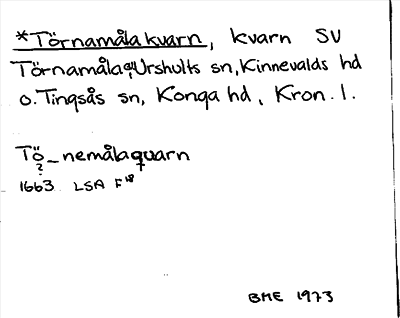 *Törnamåla kvarn, kvarn SV
Törnamåla, Urshults sn, Kinnevalds hd
o. Tingsås sn, Konga hd, Kron. l.
Tö_nemålaquarn
?
1663 LSA F18
BME 1973